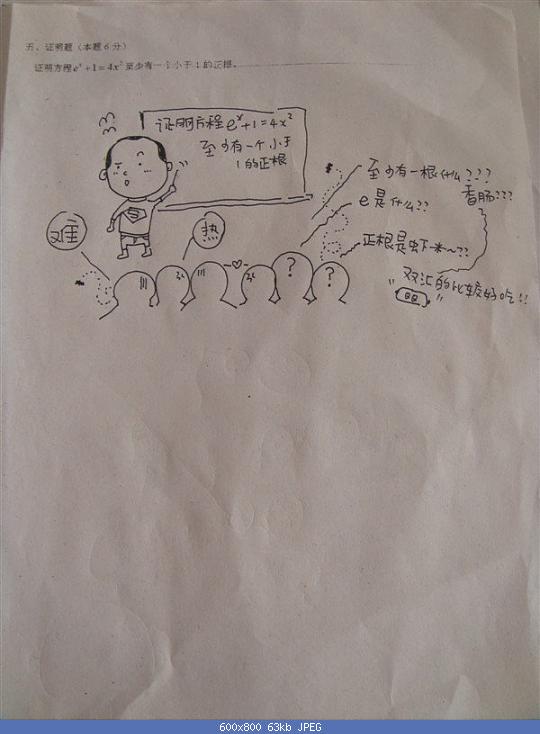 五、证明题（本题6分）
证明方程eˣ+1=4x²至少有一个小于1的正根。
证明方程eˣ+1=4x²
至少有一个小于
1的正根
至少有一根什么???
香肠???
e是什么??
正根是虾米~??
双汇的比较好吃!!
难
热
?
?
600x800 63kb JPEG